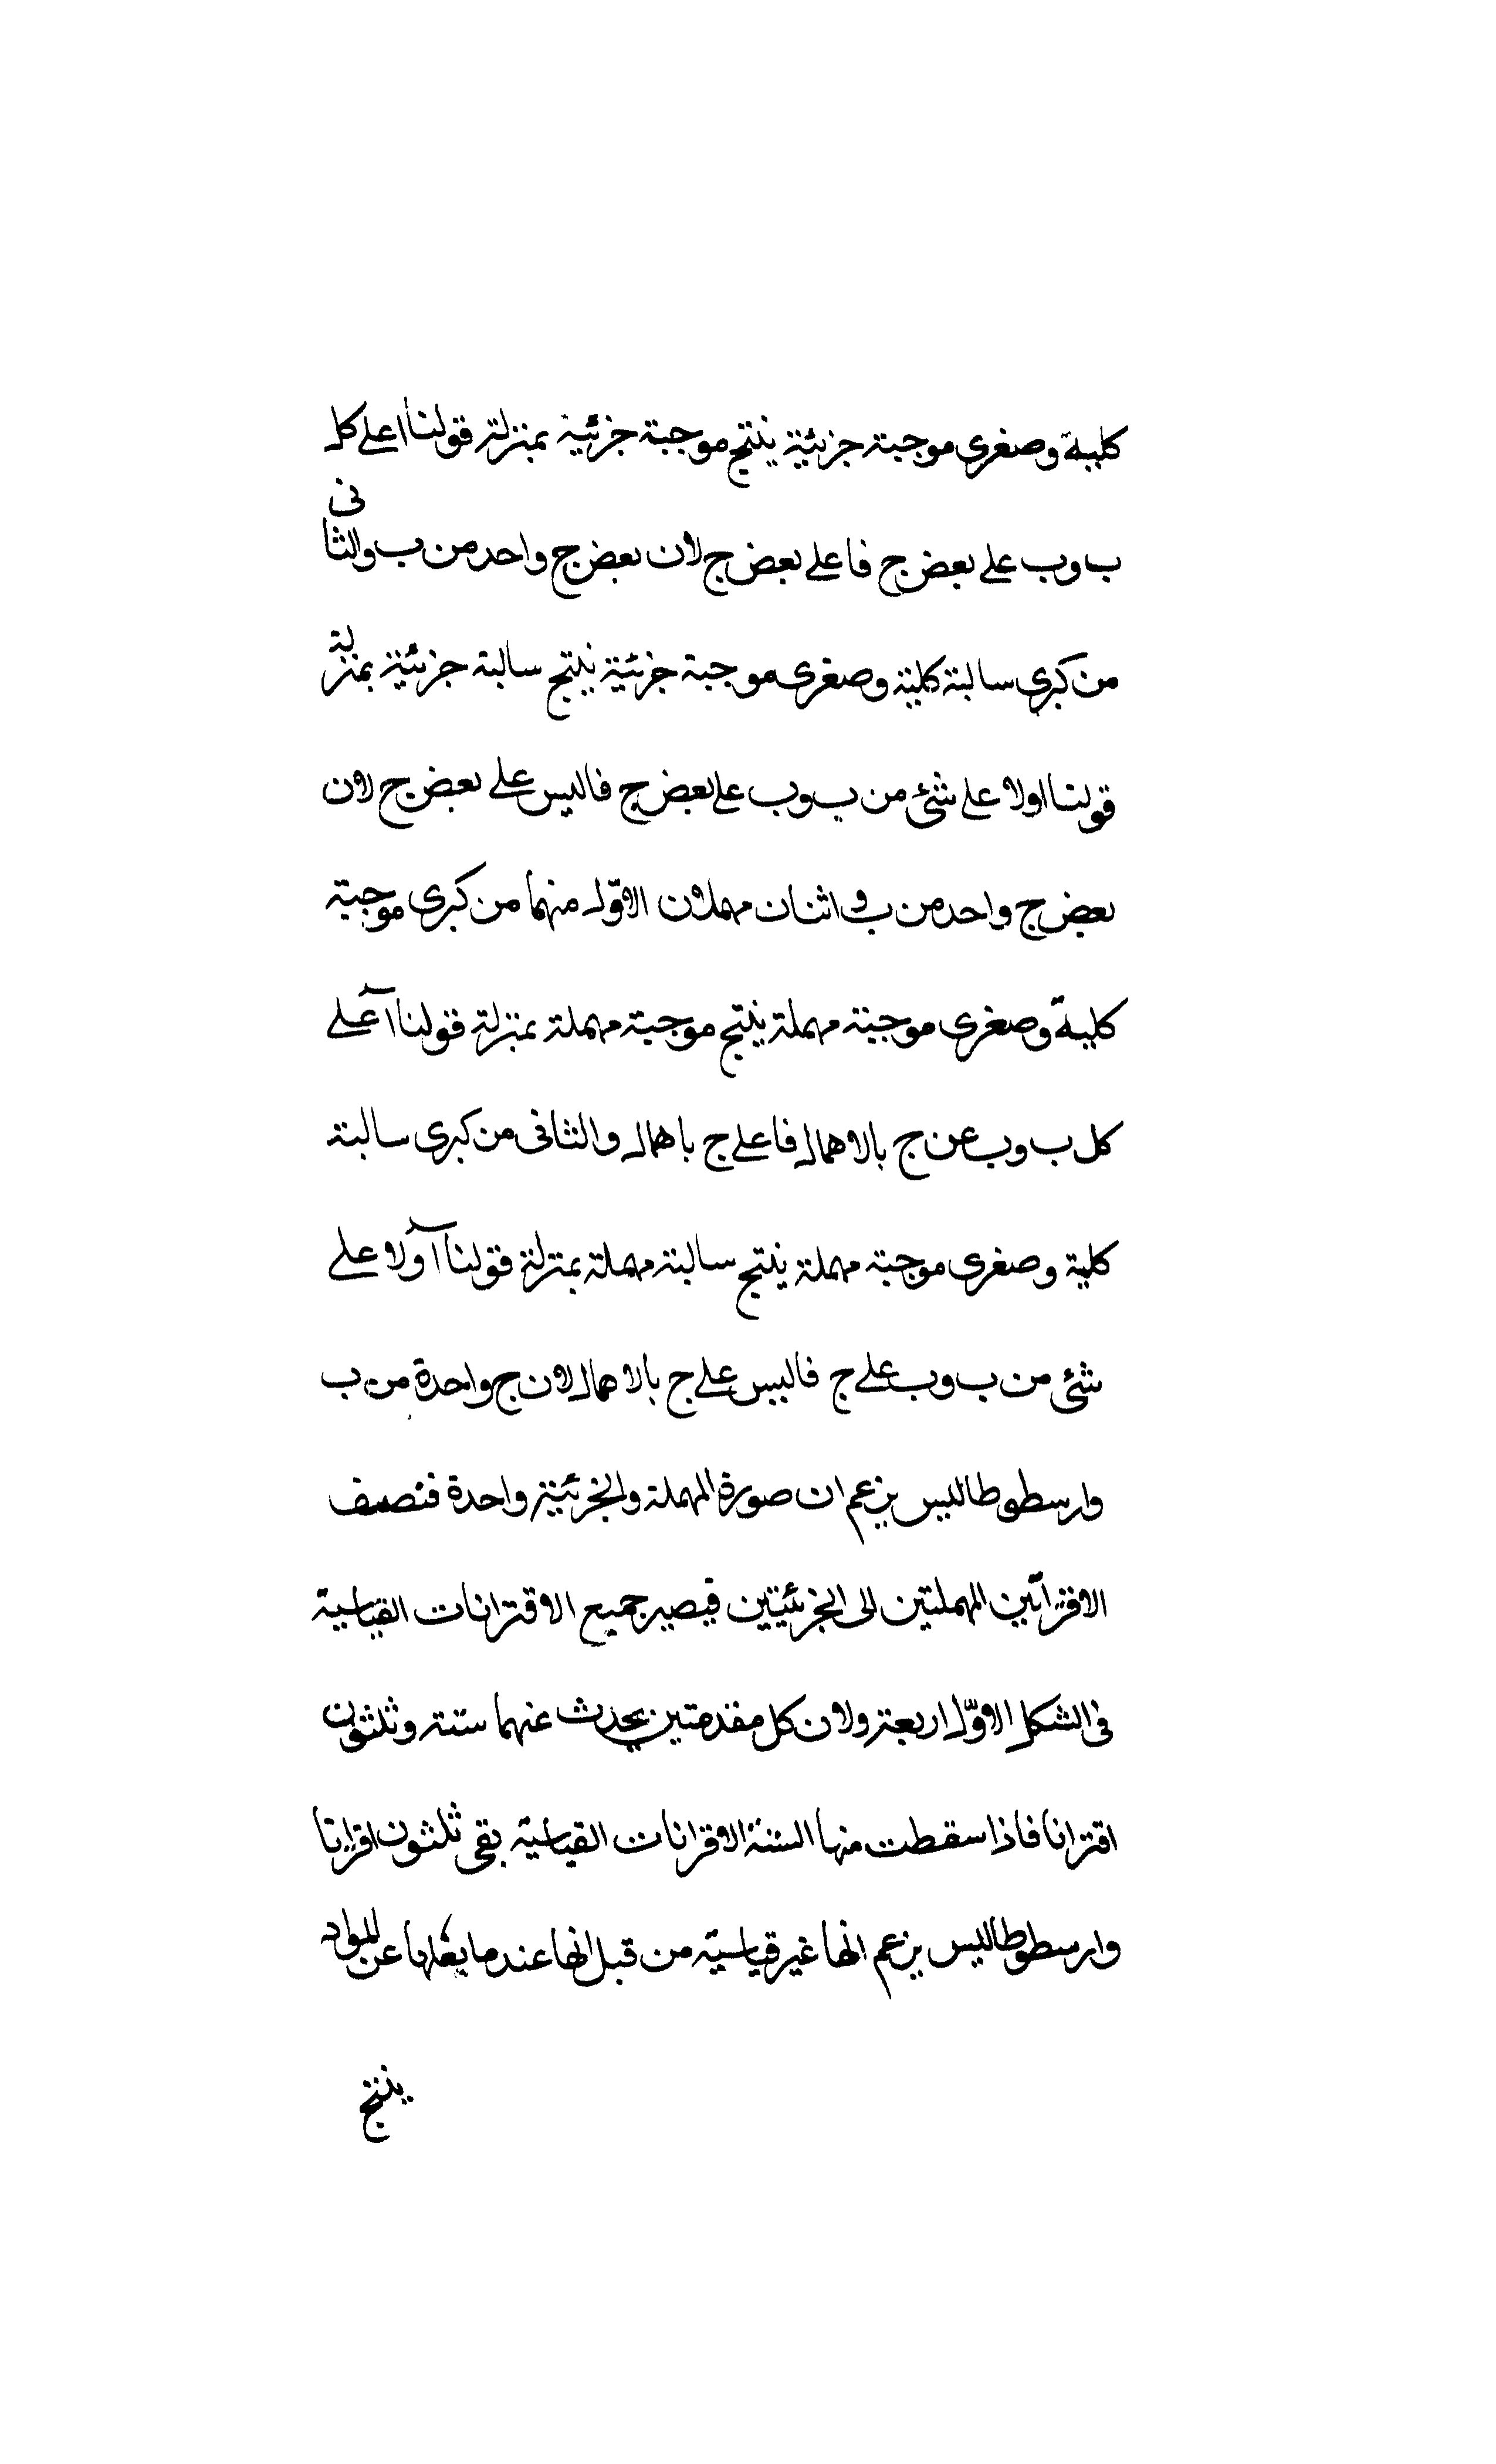 كلية وصغرى موجبة جزئية ينتج موجبة جزئية بمنزلة قولنا ا على كل
ب وب على بعض ج فا على بعض ج لان بعض ج واحد من ب والثانى
من كبرى سالبة كلية وصغرى موجبة جزئية ينتج سالبة جزئية بمنزلة
قولنا ا ولا على شئ من ب وب على بعض ج فا ليس على بعض ج لان
بعض ج واحد من ب و اثنان مهملان الاوّل منهما من كبرى موجبة
كلية وصغرى موجبة مهملة ينتج موجبة مهملة بمنزلة قولنا آ على
كل ب وب عن ج بالاهمال فا على ج باهمال والثانى من كبرى سالبة
كلية وصغرى موجبة مهملة ينتج سالبة مهملة بمنزلة قولنا آ ولا على
شئ من ب وب على ج فا ليس على ج بالاهمال لان ج واحدة من ب
وارسطوطاليس يزعم ان صورة المهملة والجزئية واحدة فتضيف
الاقترانين المهملتين الى الجزئيتين فيصير جميع الاقترانات القياسية
فى الشكل الاوّل اربعة ولان كل مقدمتين يحدث عنهما ستة وثلثون
اقترانا فاذا سقطت منها الستة الاقرانات القياسية بقى ثلثون اقرانا
وارسطوطاليس يزعم انها غير قياسية من قبل انها عندما عن المواد
ينتج